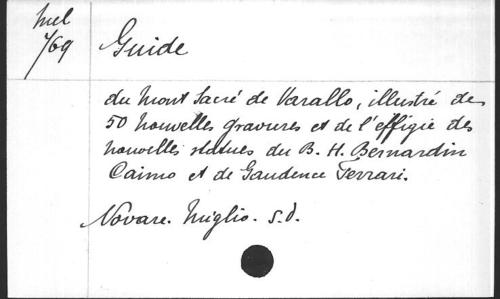 Mel
7/69
Guide
du Mont Sacré de Varallo, illustré de
50 nouvelles gravures et de l'effigie des
nouvelles statues du B. H. Bernardin
Caimo et de Gaudence Ferrari.
Novare. Miglio. s.d.